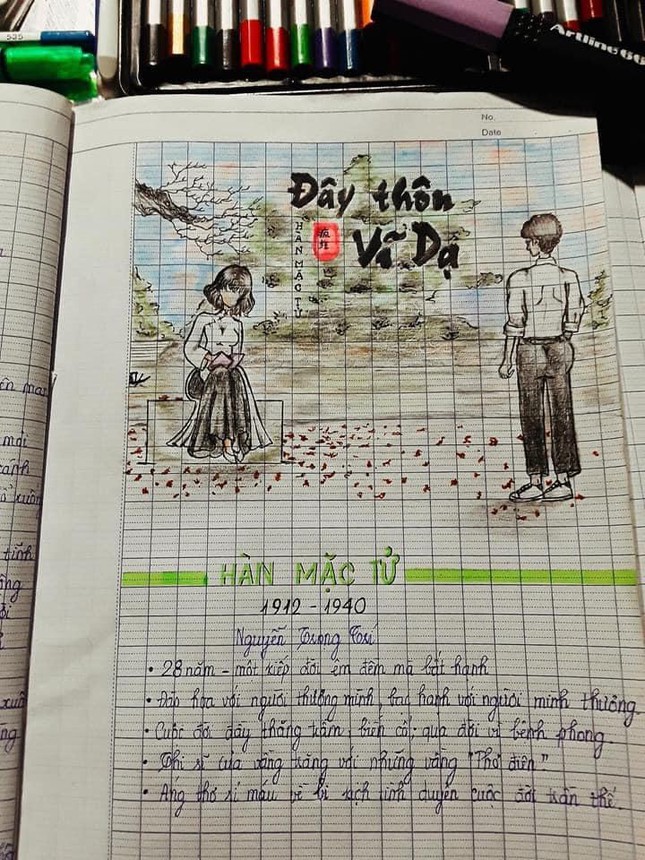 535
Artline 66
No.
Date
Đây thôn
Vĩ Dạ
HÀN MẶC TỬ
HÀN MẶC TỬ
1912 - 1940
Nguyễn Trọng Trí
• 28 năm - một kiếp đời êm đềm mà bất hạnh
• Đào hoa với người thương mình, hạnh với người mình thương
• Cuộc đời đầy thăng trầm, biến cố; qua đời vì bệnh phong.
• Thi sĩ của vầng trăng với những vầng "Thơ điên".
• Áng thơ rỉ máu về bi kịch tình duyên cuộc đời trần thế.